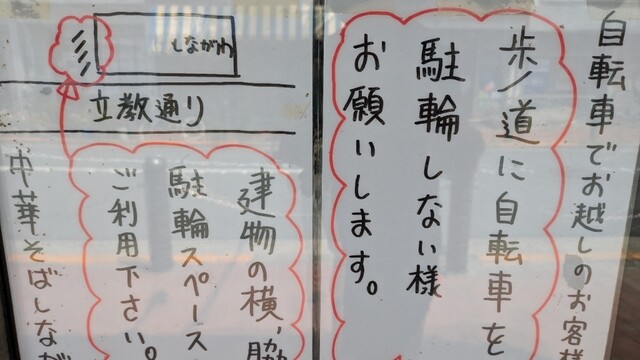 自転車でお越しのお客様
歩道に自転車を
駐輪しない様
お願いします。
しながわ
立教通り
建物の横、脇
駐輪スペース
ご利用下さい。
中華そばしなが